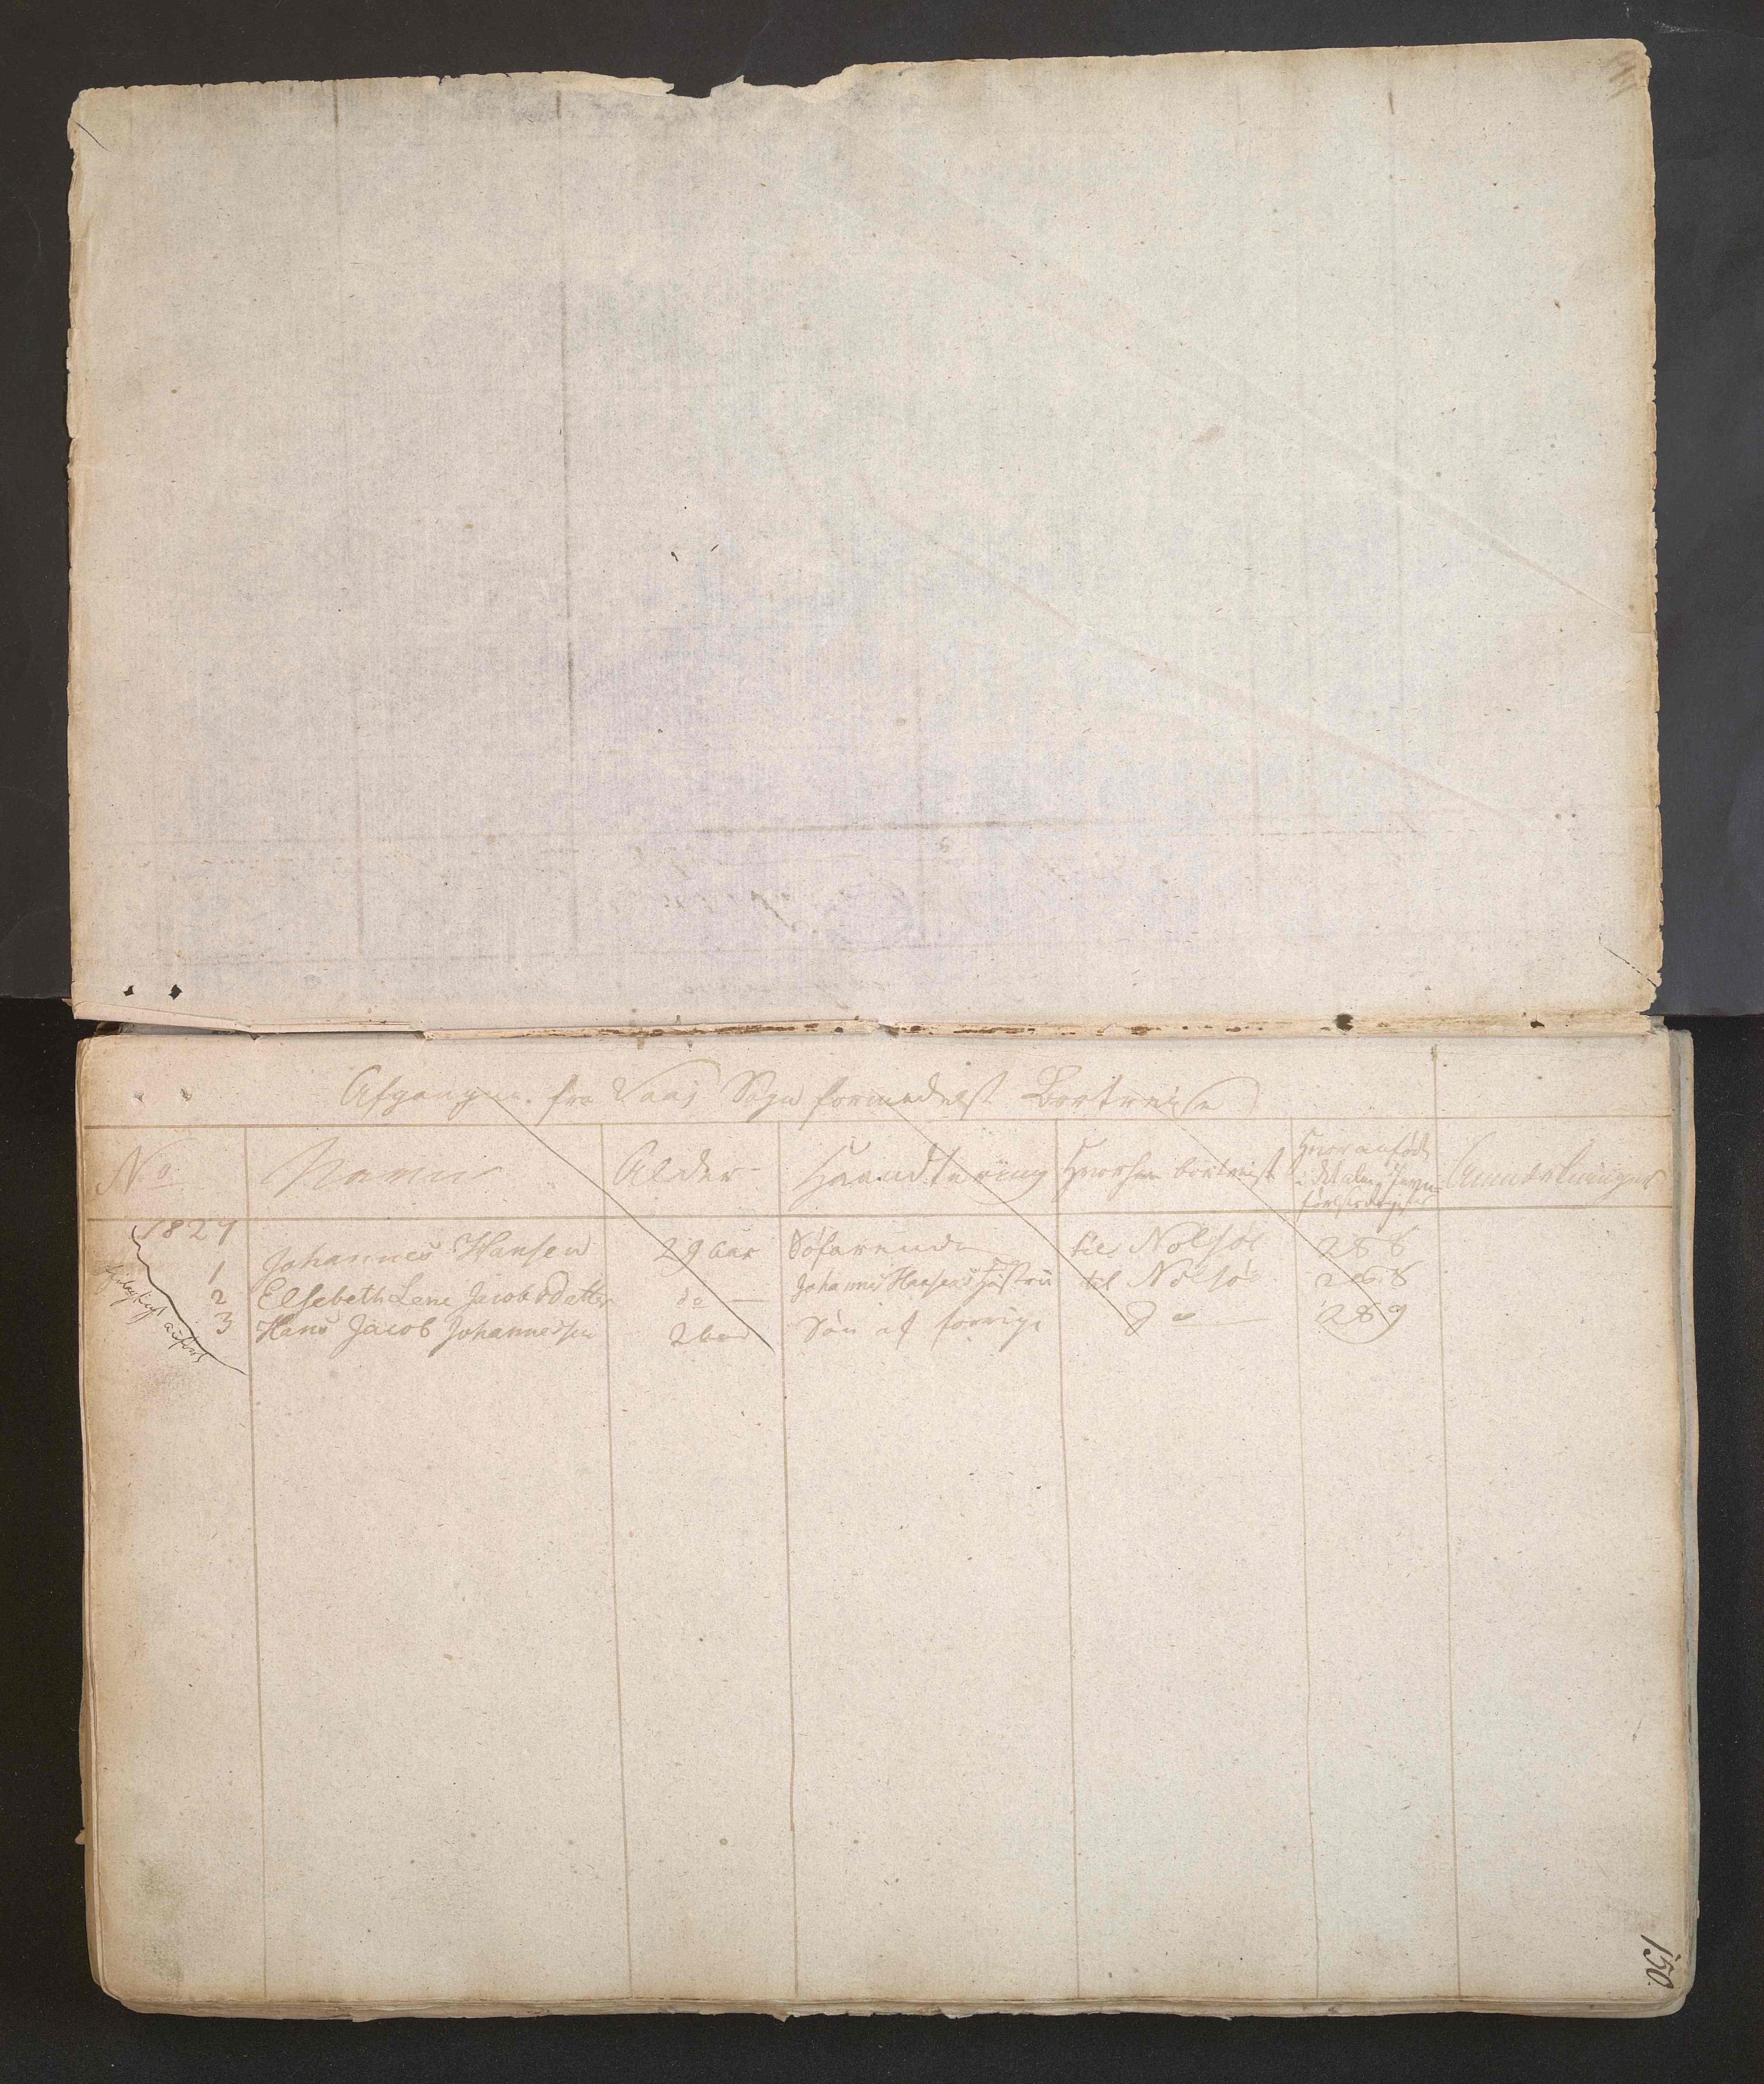 Afgangne fra Vaag Sogn formedelst Bortreise
No Navne Alder Haandtering Hvorhen bortreist Hvor anført i det alm: Jevnførelsesregister Anmærkninger
1827
1 Johannes Hansen 29 aar Søfarende til Nolsøe 288
2 Elsebeth Lene Jacobsdatter do — Johannes Hansens Hustru til Nolsøe 288
3 Hans Jacob Johannessen 2 aar Søn af forrige do — 289
anført
150.